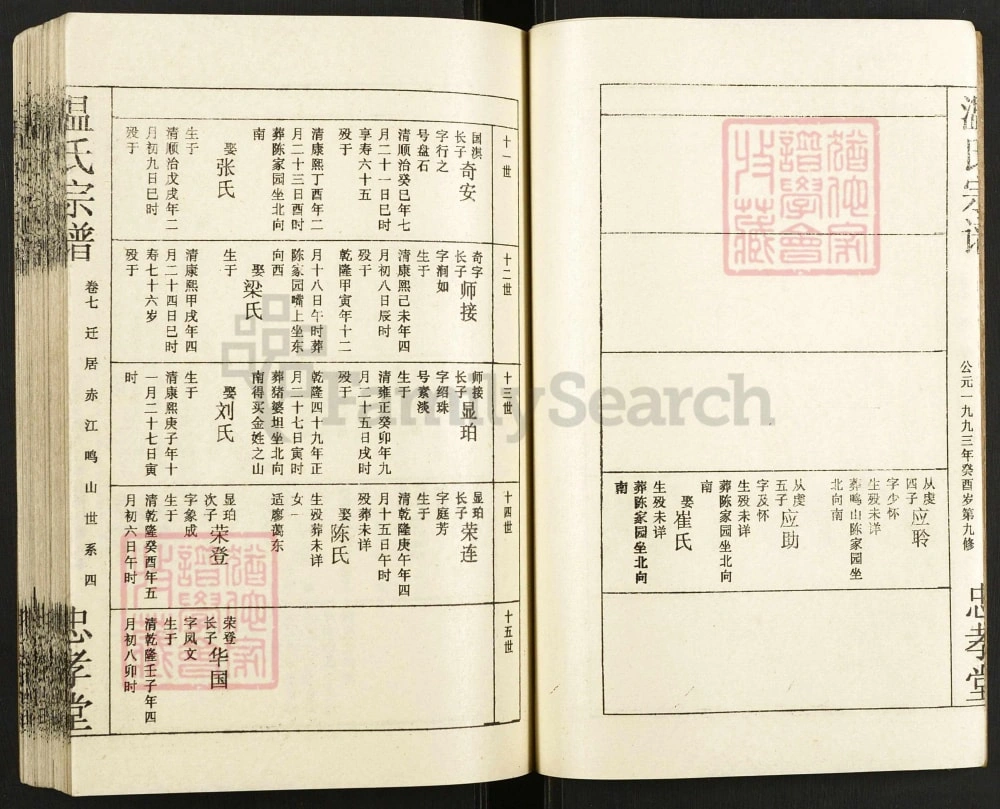 温氏宗谱
公元一九九三年癸酉岁第九修
忠孝堂
从虔
四子应聆
字少怀
生殁未详
葬鸣山陈家园坐
北向南
从虔
五子应助
字及怀
生殁未详
葬陈家园坐北向
南
娶崔氏
生殁未详
葬陈家园坐北向
南
十一世
国淇
长子奇安
字行之
号盘石
清顺治癸巳年七
月二十一日巳时
享寿六十五
殁于
清康熙丁酉年二
月二十三日酉时
葬陈家园坐北向
南
娶张氏
生于
清顺治戊戌年二
月初九日巳时
殁于
十二世
奇字
长子师接
字涧如
生于
清康熙己未年四
月初八日辰时
殁于
乾隆甲寅年十二
月十八日午时葬
陈家园嘴上坐东
向西
娶梁氏
生于
清康熙甲戌年四
月二十四日巳时
寿七十六岁
殁于
十三世
师接
长子显珀
字绍珠
号素淡
生于
清雍正癸卯年九
月二十五日戌时
殁于
乾隆四十九年正
月二十七日寅时
葬猪婆坦坐北向
南得买金姓之山
娶刘氏
生于
清康熙庚子年十
一月二十七日寅
时
十四世
显珀
长子荣连
字庭芳
生于
清乾隆庚午年四
月十五日午时
殁葬未详
娶陈氏
生殁葬未详
女一
适廖蔼东
显珀
次子荣登
字象成
生于
清乾隆癸酉年五
月初六日午时
十五世
荣登
长子华国
字凤文
生于
清乾隆壬子年四
月初八卯时
温氏宗谱
卷七 迁居赤江鸣山世系四
忠孝堂
FamilySearch